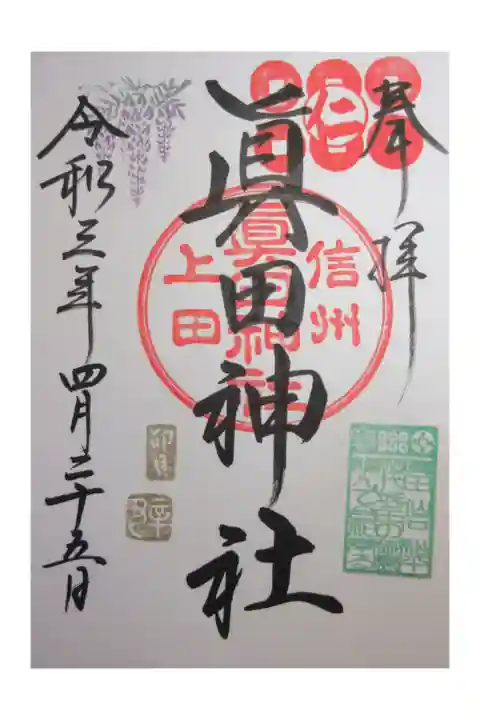 奉拝
眞田神社
信州
眞田神社
上田
仁
令和三年四月二十五日
卯月